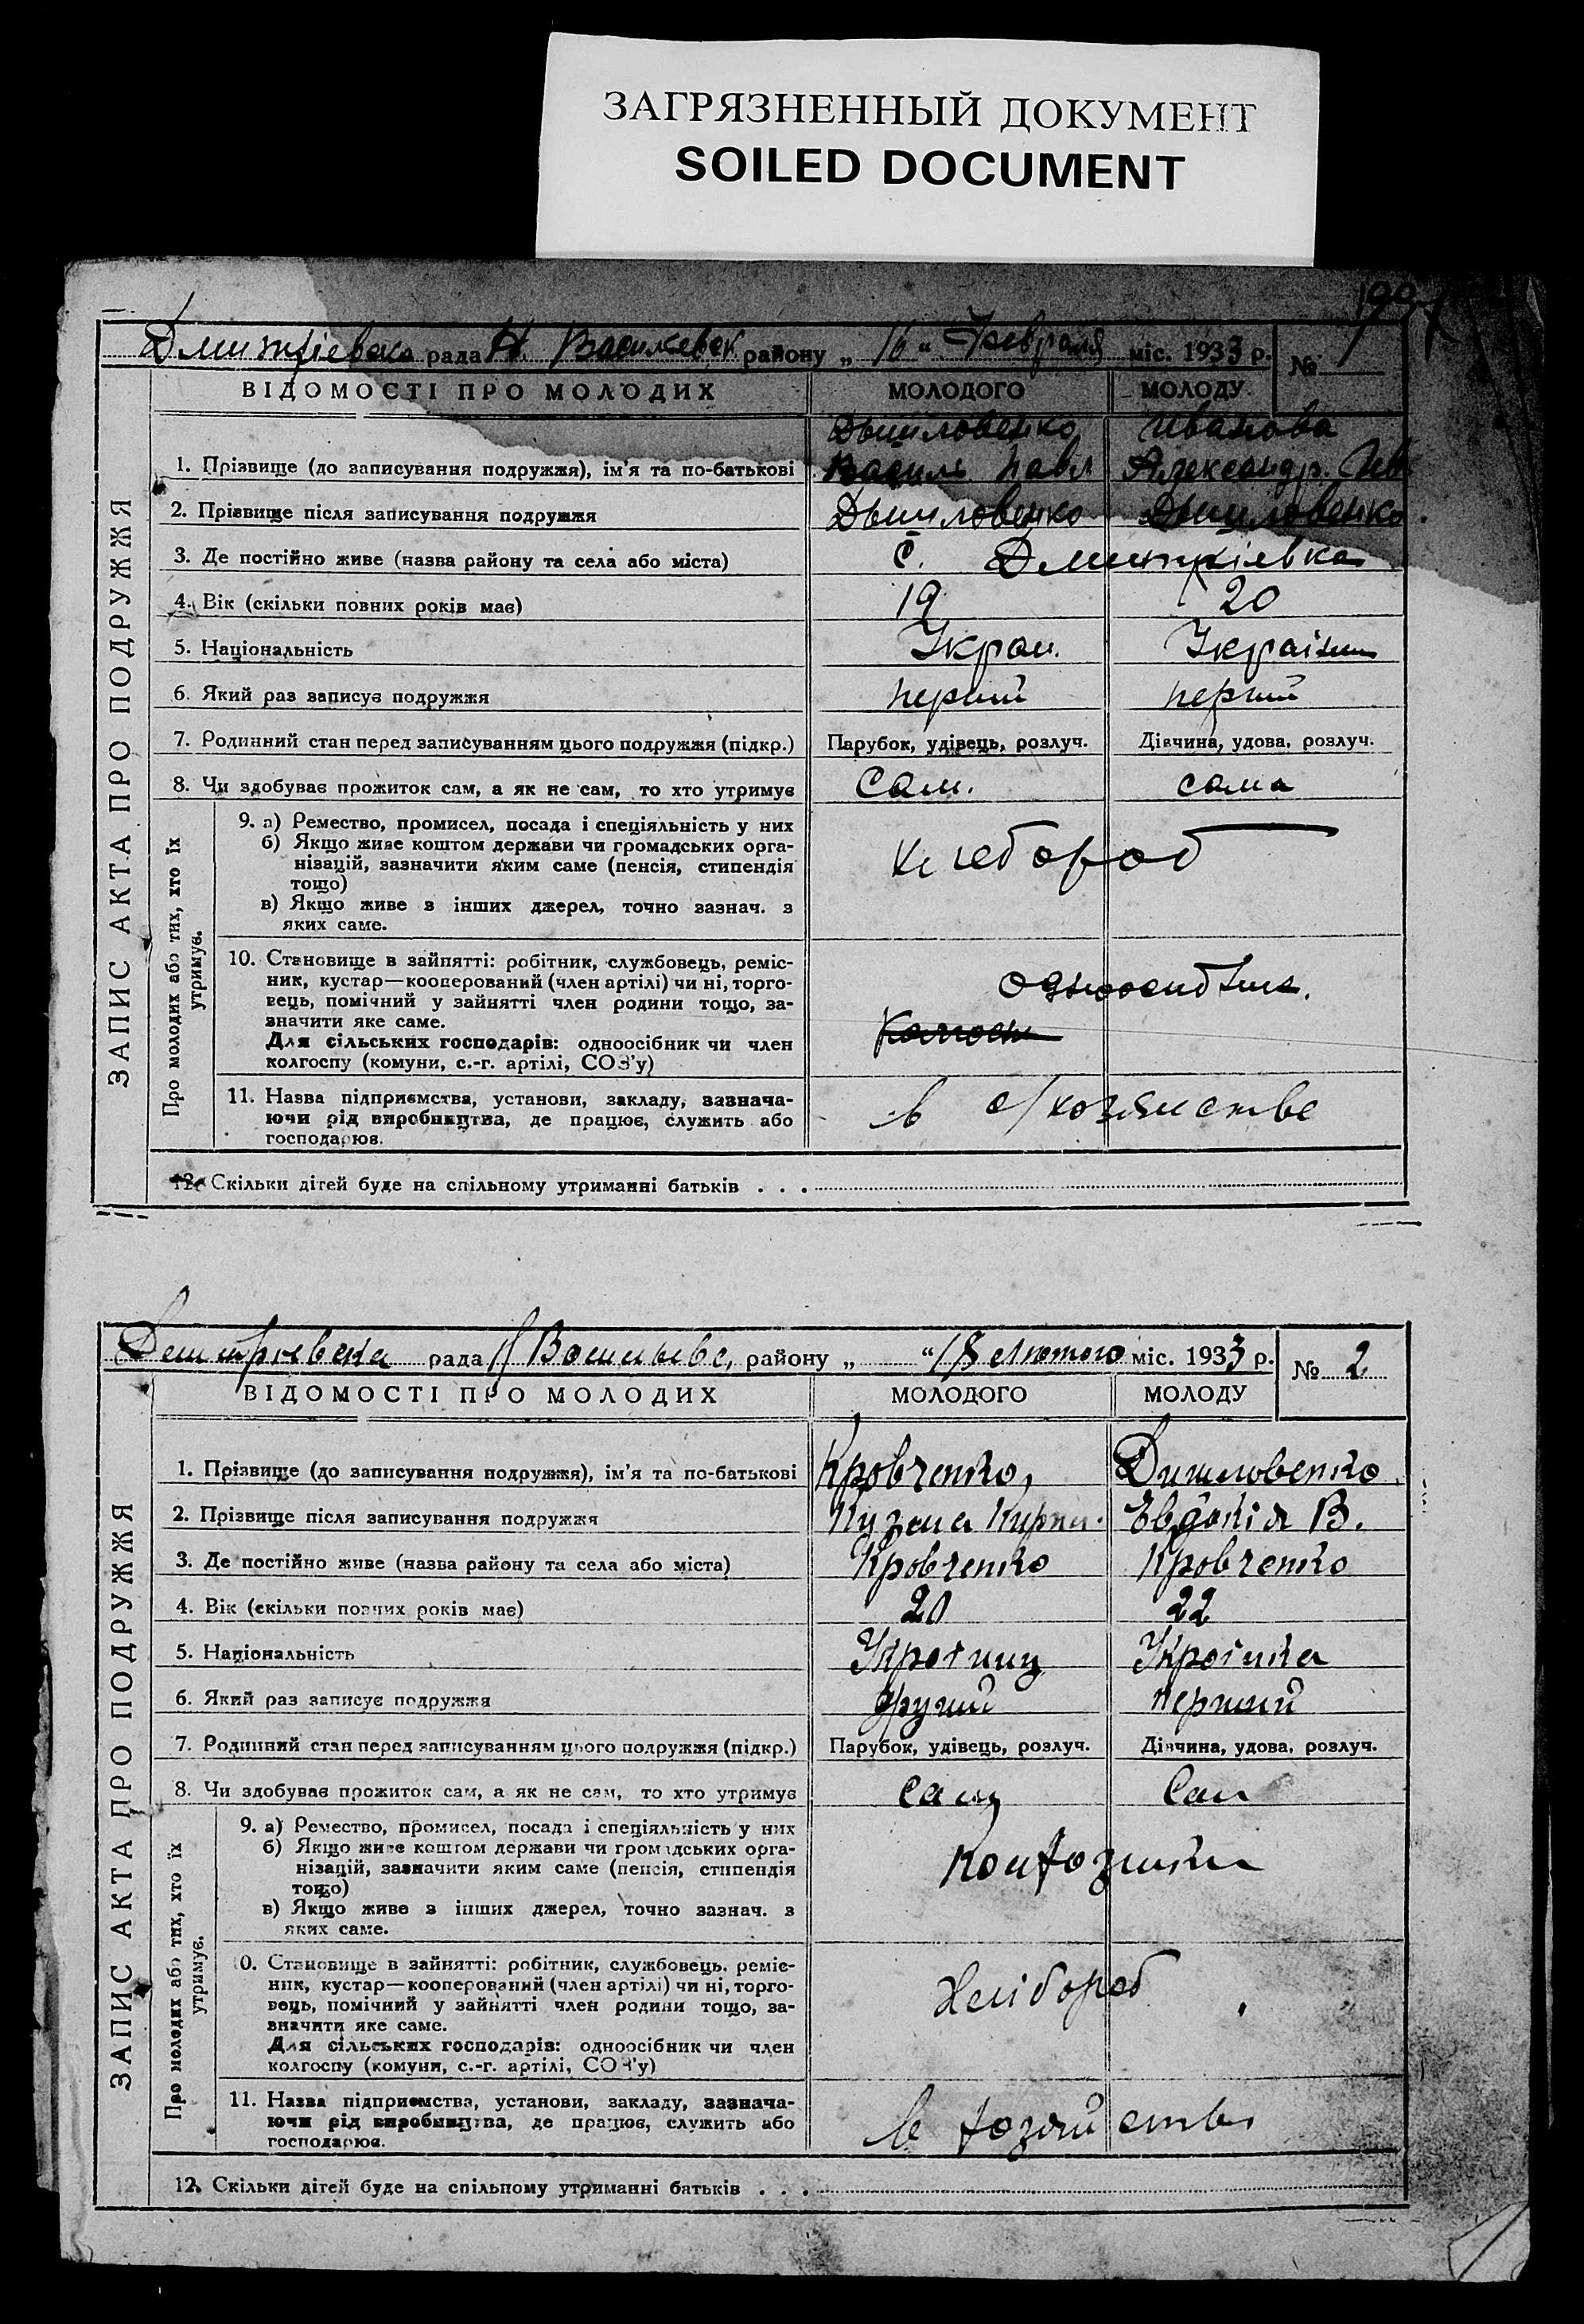 ЗАГРЯЗНЕННЫЙ ДОКУМЕНТ
SOILED DOCUMENT
Дмитрієвска рада Н. Василевск району „ 16 “ Февраля міс. 1933 р. № 1
ВІДОМОСТІ ПРО МОЛОДИХ МОЛОДОГО МОЛОДУ
ЗАПИС АКТА ПРО ПОДРУЖЖЯ
Дышловенко Иванова
1. Прізвище (до записування подружжя), ім'я та по-батькові Василь Павл Александр. Ив
2. Прізвище після записування подружжя Дышловенко Дышловенко
3. Де постійно живе (назва району та села або міста) С. Дмитрієвка
4. Вік (скільки повних років має) 19 20
5. Національність Украи. Україн
6. Який раз записує подружжя перший перший
7. Родинний стан перед записуванням цього подружжя (підкр.) Парубок, удівець, розлуч. Дівчина, удова, розлуч.
8. Чи здобуває прожиток сам, а як не сам, то хто утримує Сам. сама
Про молодих або тих, хто їх утримує.
9. а) Ремество, промисел, посада і спеціяльність у них
б) Якщо живе коштом держави чи громадських орга-
нізацій, зазначити яким саме (пенсія, стипендія
тощо)
в) Якщо живе з інших джерел, точно зазнач. з
яких саме.
хлебороб
10. Становище в зайнятті: робітник, службовець, реміс-
ник, кустар—кооперований (член артілі) чи ні, торго-
вець, помічний у зайнятті член родини тощо, за-
значити яке саме.
Для сільських господарів: одноосібник чи член
колгоспу (комуни, с.-г. артілі, СОЗ'у)
11. Назва підприємства, установи, закладу, зазнача-
ючи рід виробництва, де працює, служить або
господарює.
в с/хозяистве
12. Скільки дітей буде на спільному утриманні батьків . . .
рада району „ “ 18 Лютого міс. 1933 р. № 2
ВІДОМОСТІ ПРО МОЛОДИХ МОЛОДОГО МОЛОДУ
ЗАПИС АКТА ПРО ПОДРУЖЖЯ
1. Прізвище (до записування подружжя), ім'я та по-батькові Кровченко, Дишловенко
2. Прізвище після записування подружжя Кузма Евдокія В.
3. Де постійно живе (назва району та села або міста) Кровченко Кровченко
4. Вік (скільки повних років має) 20 22
5. Національність
6. Який раз записує подружжя другий перший
7. Родинний стан перед записуванням цього подружжя (підкр.) Парубок, удівець, розлуч. Дівчина, удова, розлуч.
8. Чи здобуває прожиток сам, а як не сам, то хто утримує Сам Сам
Про молодих або тих, хто їх утримує.
9. а) Ремество, промисел, посада і спеціяльність у них
б) Якщо живе коштом держави чи громадських орга-
нізацій, зазначити яким саме (пенсія, стипендія
тощо)
в) Якщо живе з інших джерел, точно зазнач. з
яких саме.
10. Становище в зайнятті: робітник, службовець, реміс-
ник, кустар—кооперований (член артілі) чи ні, торго-
вець, помічний у зайнятті член родини тощо, за-
значити яке саме.
Для сільських господарів: одноосібник чи член
колгоспу (комуни, с.-г. артілі, СОЗ'у)
Хлібороб
11. Назва підприємства, установи, закладу, зазнача-
ючи рід виробництва, де працює, служить або
господарює.
12. Скільки дітей буде на спільному утриманні батьків . . .